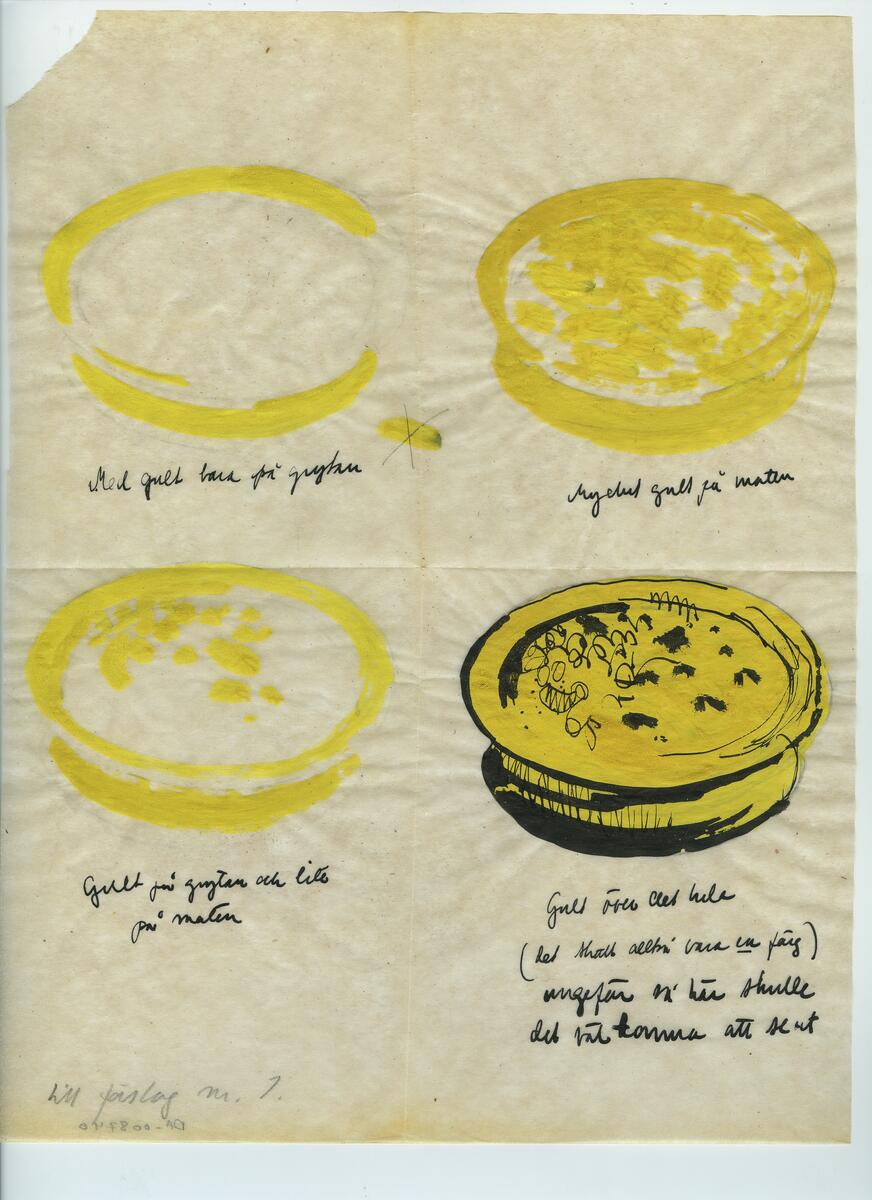 Med gult bara på grytan
Mycket gult på maten
Gult på grytan och lite
på maten
Gult över det hela
(det skall alltså vara en färg)
ungefär så här skulle
det väl komma att se ut
till förslag nr. 1.
DA-008740